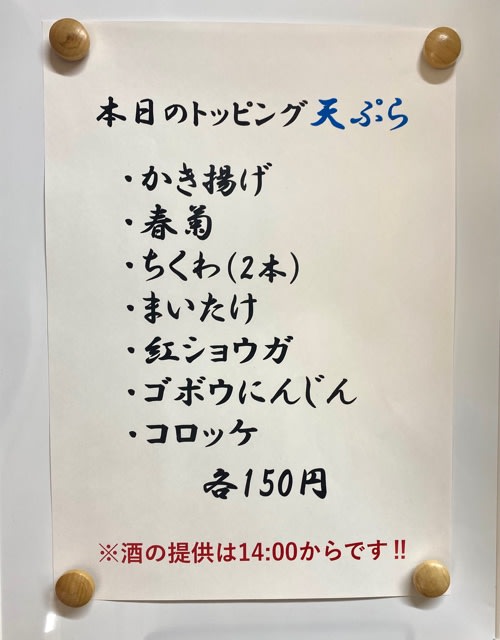 本日のトッピング天ぷら
・かき揚げ
・春菊
・ちくわ(2本)
・まいたけ
・紅ショウガ
・ゴボウにんじん
・コロッケ
各150円
※酒の提供は14:00からです!!